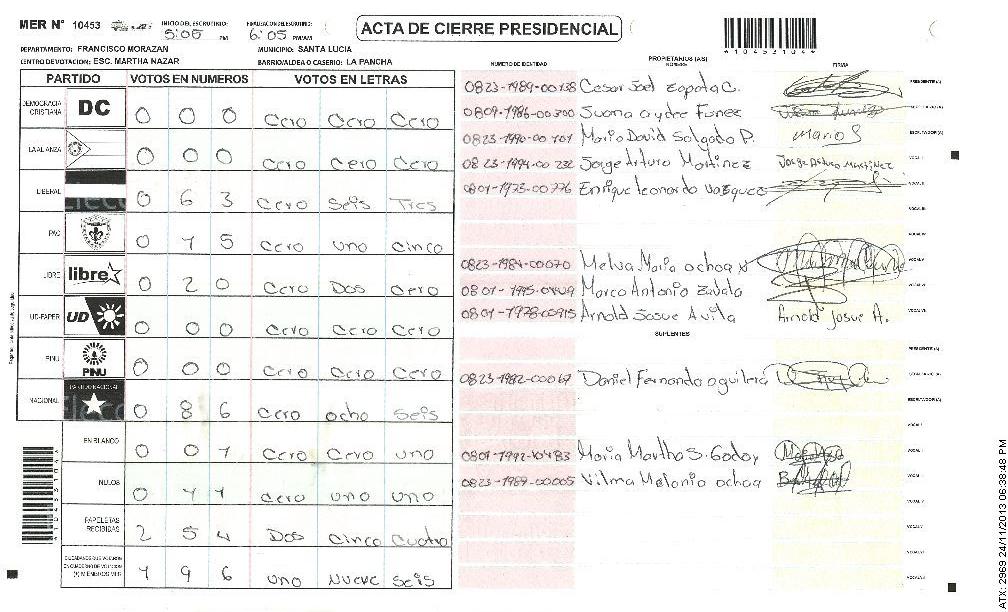 MER Nº 10453 INICIO DEL ESCRUTINIO: 5:00 PM FINALIZACION DEL ESCRUTINIO: 6:05 PM/AM ACTA DE CIERRE PRESIDENCIAL
*10453104*
DEPARTAMENTO: FRANCISCO MORAZAN MUNICIPIO: SANTA LUCIA
CENTRO DE VOTACION: ESC. MARTHA NAZAR BARRIO/ALDEA O CASERIO: LA PANCHA
PROPIETARIOS (AS)
PARTIDO VOTOS EN NUMEROS VOTOS EN LETRAS NUMERO DE IDENTIDAD NOMBRE FIRMA
DEMOCRACIA CRISTIANA DC 0 0 0 Cero Cero Cero
LA ALIANZA 0 0 0 Cero Cero Cero
LIBERAL 0 6 3 Cero Seis Tres
PAC 0 1 5 Cero uno cinco
LIBRE libre 0 2 0 Cero Dos Cero
UD-FAPER UD 0 0 0 Cero Cero Cero
PINU PINU 0 0 0 Cero Cero Cero
NACIONAL PARTIDO NACIONAL 0 8 6 Cero ocho Seis
EN BLANCO 0 0 1 Cero Cero uno
NULOS 0 1 1 Cero uno uno
PAPELETAS RECIBIDAS 2 5 4 Dos Cinco Cuatro
CIUDADANOS QUE VOTARON EN CUADERNO DE VOTACION (+) MIEMBROS MER 1 9 6 uno Nueve Seis
0823-1989-00138 Cesar Joel Zapata C. PRESIDENTE (A)
0809-1986-00300 Suana aydre Funez SECRETARIO (A)
0823-1990-00101 Mario David Salgado P. Mario S ESCRUTADOR (A)
0823-1994-00232 Jorge Arturo Martinez Jorge Arturo Martinez VOCAL I
0801-1973-00776 Enrique leonardo Vasquez VOCAL II
VOCAL III
VOCAL IV
0823-1984-00070 Melva Maria ochoa VOCAL V
Marco Antonio Zavala VOCAL VI
0801-1978-00915 Arnold Josue Avila Arnold Josue A. VOCAL VII
SUPLENTES
PRESIDENTE (A)
0823-1982-00067 Daniel Fernando aguilera SECRETARIO (A)
ESCRUTADOR (A)
VOCAL I
0801-1992-10483 Maria Martha S. Godoy VOCAL II
0823-1989-00005 Vilma Melania ochoa
VOCAL V
ATX: 2969 24/11/2013 06:38:48 PM